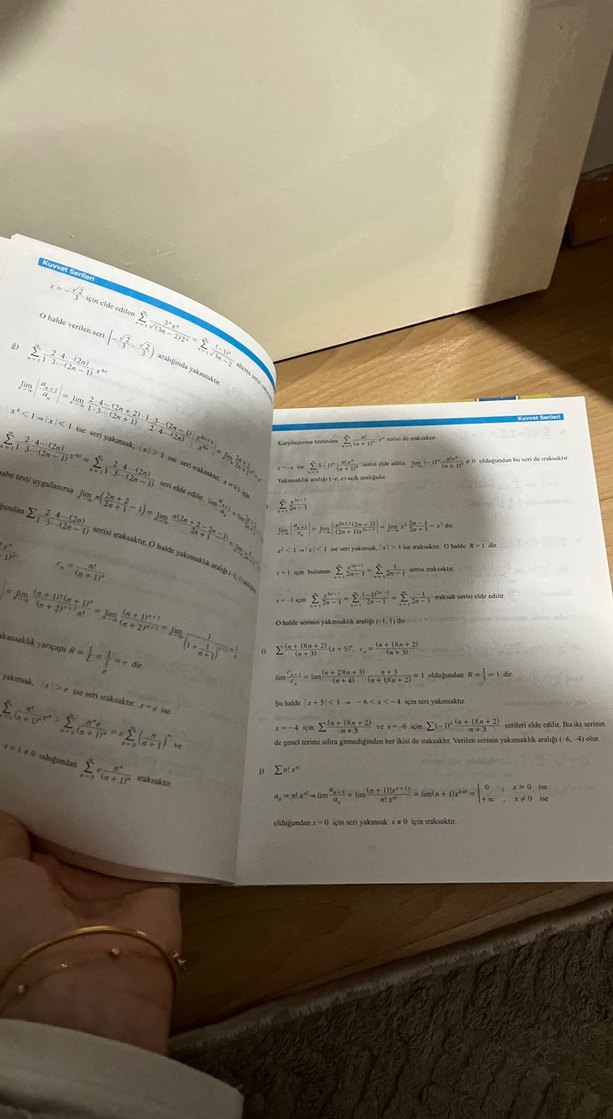 Kuvvet Serileri
x = -√2/3 için elde edilen ∑_{n=1}^{∞} 3ⁿxⁿ/(√(3n-2) 2ⁿ) = ∑_{n=1}^{∞} (-1)ⁿ/√(3n-2)
O halde verilen seri [-√2/3, √2/3) aralığında yakınsaktır.
g) ∑_{n=1}^{∞} 2·4···(2n)/(1·3···(2n-1)) x⁴ⁿ
|x⁴ < 1 ⇒ |x| < 1 ise seri yakınsak, |x| > 1 ise seri ıraksaktır. x = ∓1 için
∑_{n=1}^{∞} 2·4···(2n)/(1·3···(2n-1)) x⁴ⁿ = ∑_{n=1}^{∞} 2·4···(2n)/(1·3···(2n-1)) seri elde edilir.
testi uygulanırsa lim n((2n+2)/(2n+1) - 1) = lim n(2n+2-2n-1)/(2n+1)
∑ 2·4···(2n)/(1·3···(2n-1)) serisi ıraksaktır. O halde yakınsaklık aralığı (-1, 1)
cₙ = n!/(n+1)ⁿ
= lim (n+1)!(n+1)ⁿ/((n+2)ⁿ⁺¹n!) = lim (n+1)ⁿ⁺¹/(n+2)ⁿ⁺¹ = lim 1/(1 + 1/(n+1))ⁿ⁺¹ = 1/e
yarıçapı R = 1/L = 1/(1/e) = e dir.
yakınsak, |x| > e ise seri ıraksaktır. x = e ise
= e∑_{n=0}^{∞} (n/(n+1))ⁿ ve
e = 1 ≠ 0 olduğundan ∑_{n=0}^{∞} e nⁿ/(n+1)ⁿ ıraksaktır.
Kuvvet Serileri
Karşılaştırma testinden ∑_{n=0}^{∞} n!/(n+1)ⁿ eⁿ serisi de ıraksaktır.
x = -e ise ∑_{n=0}^{∞} (-1)ⁿ n!eⁿ/(n+1)ⁿ serisi elde edilir. lim_{n→∞} (-1)ⁿ n!eⁿ/(n+1)ⁿ ≠ 0 olduğundan bu seri de ıraksaktır.
Yakınsaklık aralığı (-e, e) açık aralığıdır.
∑_{n=1}^{∞} x²ⁿ⁻¹/(2n-1)
lim_{n→∞} |aₙ₊₁/aₙ| = lim_{n→∞} |x²ⁿ⁺¹(2n-1)/((2n+1)x²ⁿ⁻¹)| = lim_{n→∞} x² (2n-1)/(2n+1) = x² dir.
x² < 1 ⇒ |x| < 1 ise seri yakınsak, |x| > 1 ise ıraksaktır. O halde R = 1 dir.
x = 1 için bulunan ∑_{n=1}^{∞} x²ⁿ⁻¹/(2n-1) = ∑_{n=1}^{∞} 1/(2n-1) serisi ıraksaktır.
x = -1 için ∑_{n=1}^{∞} x²ⁿ⁻¹/(2n-1) = ∑_{n=1}^{∞} (-1)²ⁿ⁻¹/(2n-1) = ∑_{n=1}^{∞} -1/(2n-1) ıraksak serisi elde edilir.
O halde serinin yakınsaklık aralığı (-1, 1) dir.
i) ∑ (n+1)(n+2)/(n+3) (x+5)ⁿ, cₙ = (n+1)(n+2)/(n+3)
lim cₙ₊₁/cₙ = lim (n+2)(n+3)/(n+4) · (n+3)/((n+1)(n+2)) = 1 olduğundan R = 1/1 = 1 dir.
Şu halde |x+5| < 1 ⇒ -6 < x < -4 için seri yakınsaktır.
x = -4 için ∑ (n+1)(n+2)/(n+3) ve x = -6 için ∑ (-1)ⁿ (n+1)(n+2)/(n+3) serileri elde edilir. Bu iki serinin
de genel terimi sıfıra gitmediğinden her ikisi de ıraksaktır. Verilen serinin yakınsaklık aralığı (-6, -4) olur.
j) ∑ n! xⁿ!
aₙ = n! xⁿ! ⇒ lim aₙ₊₁/aₙ = lim (n+1)!x⁽ⁿ⁺¹⁾!/(n! xⁿ!) = lim (n+1)xⁿ·ⁿ! = { 0 ; x = 0 ise
+∞ , x ≠ 0 ise
olduğundan x = 0 için seri yakınsak x ≠ 0 için ıraksaktır.